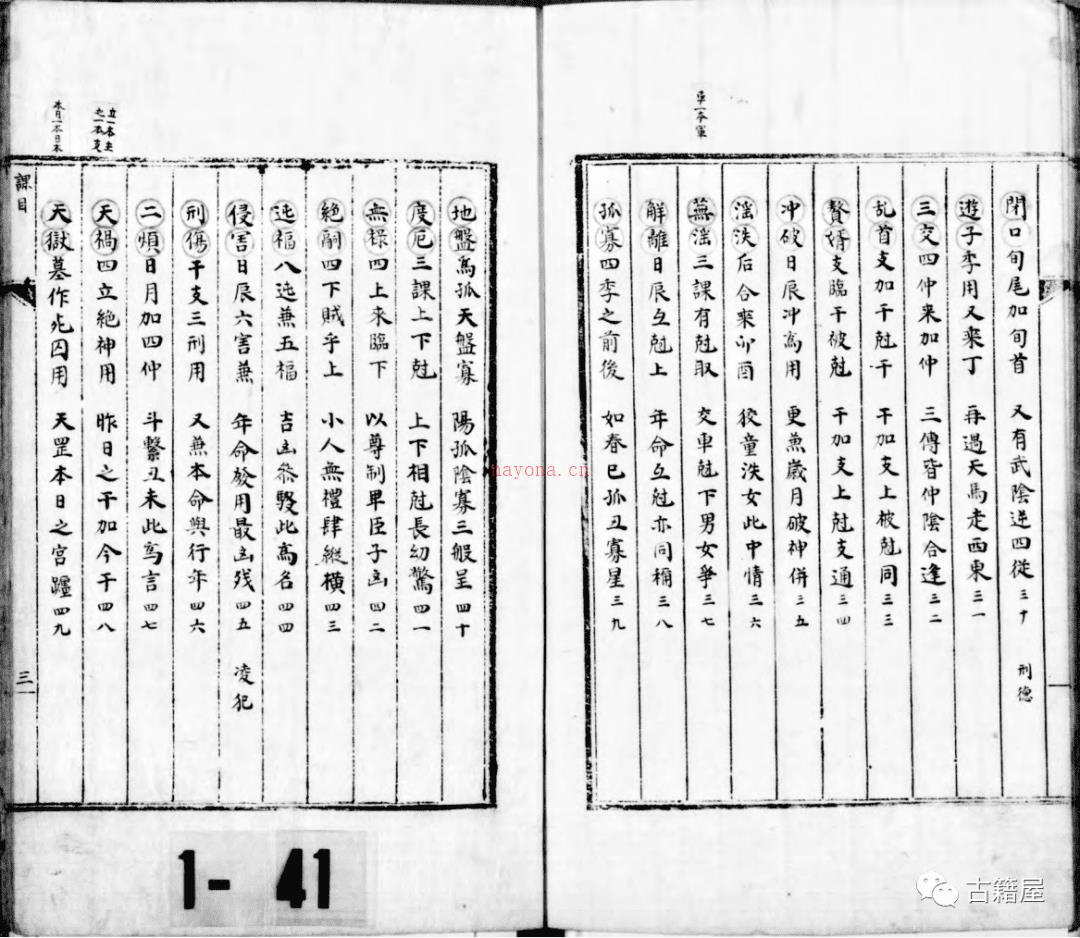 閉口旬尾加旬首 又有武陰逆四從三十 刑德
遊子季用又乗丁 再遇天馬走西東三一
三交四仲来加仲 三傳皆仲陰合逢三二
乱首支加干尅干 干加支上被尅同三三
贅婿支臨干被尅 干加支上尅支通三四
冲破日辰冲為用 更蕪歲月破神併三五
滛泆后合乗卯酉 狡童泆女此中情三六
蕪滛三課有尅取 交車尅下男女爭三七
觧離日辰互尅上 年命互尅亦同稱三八
孤寡四季之前後 如春巳孤丑寡星三九
地盤為孤天盤寡 陽孤陰寡三般呈四十
度厄三課上下尅 上下相尅長幼驚四一
無禄四上来臨下 以尊制卑臣子凶四二
絶嗣四下賊乎上 小人無禮肆縱橫四三
迍福八迍兼五福 吉凶叅駁此為名四四
侵害日辰六害兼 年命發用最凶殘四五 凌犯
刑傷干支三刑用 又兼本命與行年四六
二煩日月加四仲 斗繫丑未此為言四七
天禍四立絶神用 昨日之干加今干四八
天獄墓作死囚用 天罡本日之宮躔四九
課目
三
立一本主
之一本克
本月一本日本
1- 41
nayona.cn
古籍屋